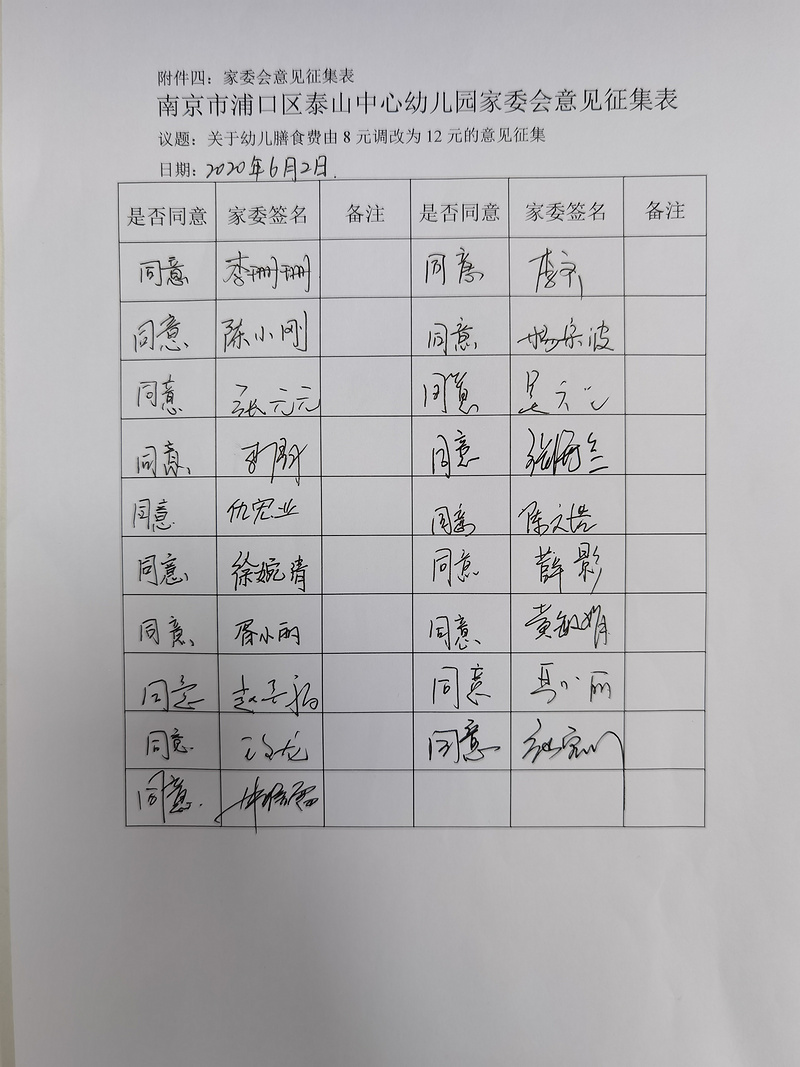 附件四：家委会意见征集表
南京市浦口区泰山中心幼儿园家委会意见征集表
议题：关于幼儿膳食费由 8 元调改为 12 元的意见征集
日期：2020年6月2日.
是否同意 家委签名 备注 是否同意 家委签名 备注
同意 李珊珊 同意
同意 陈小刚 同意
同意 张元元 同意
同意 同意
同意 仇宏业 同意 陈文浩
同意 徐婉清 同意 薛影
同意 胥小丽 同意
同意 同意 马小丽
同意 同意
同意